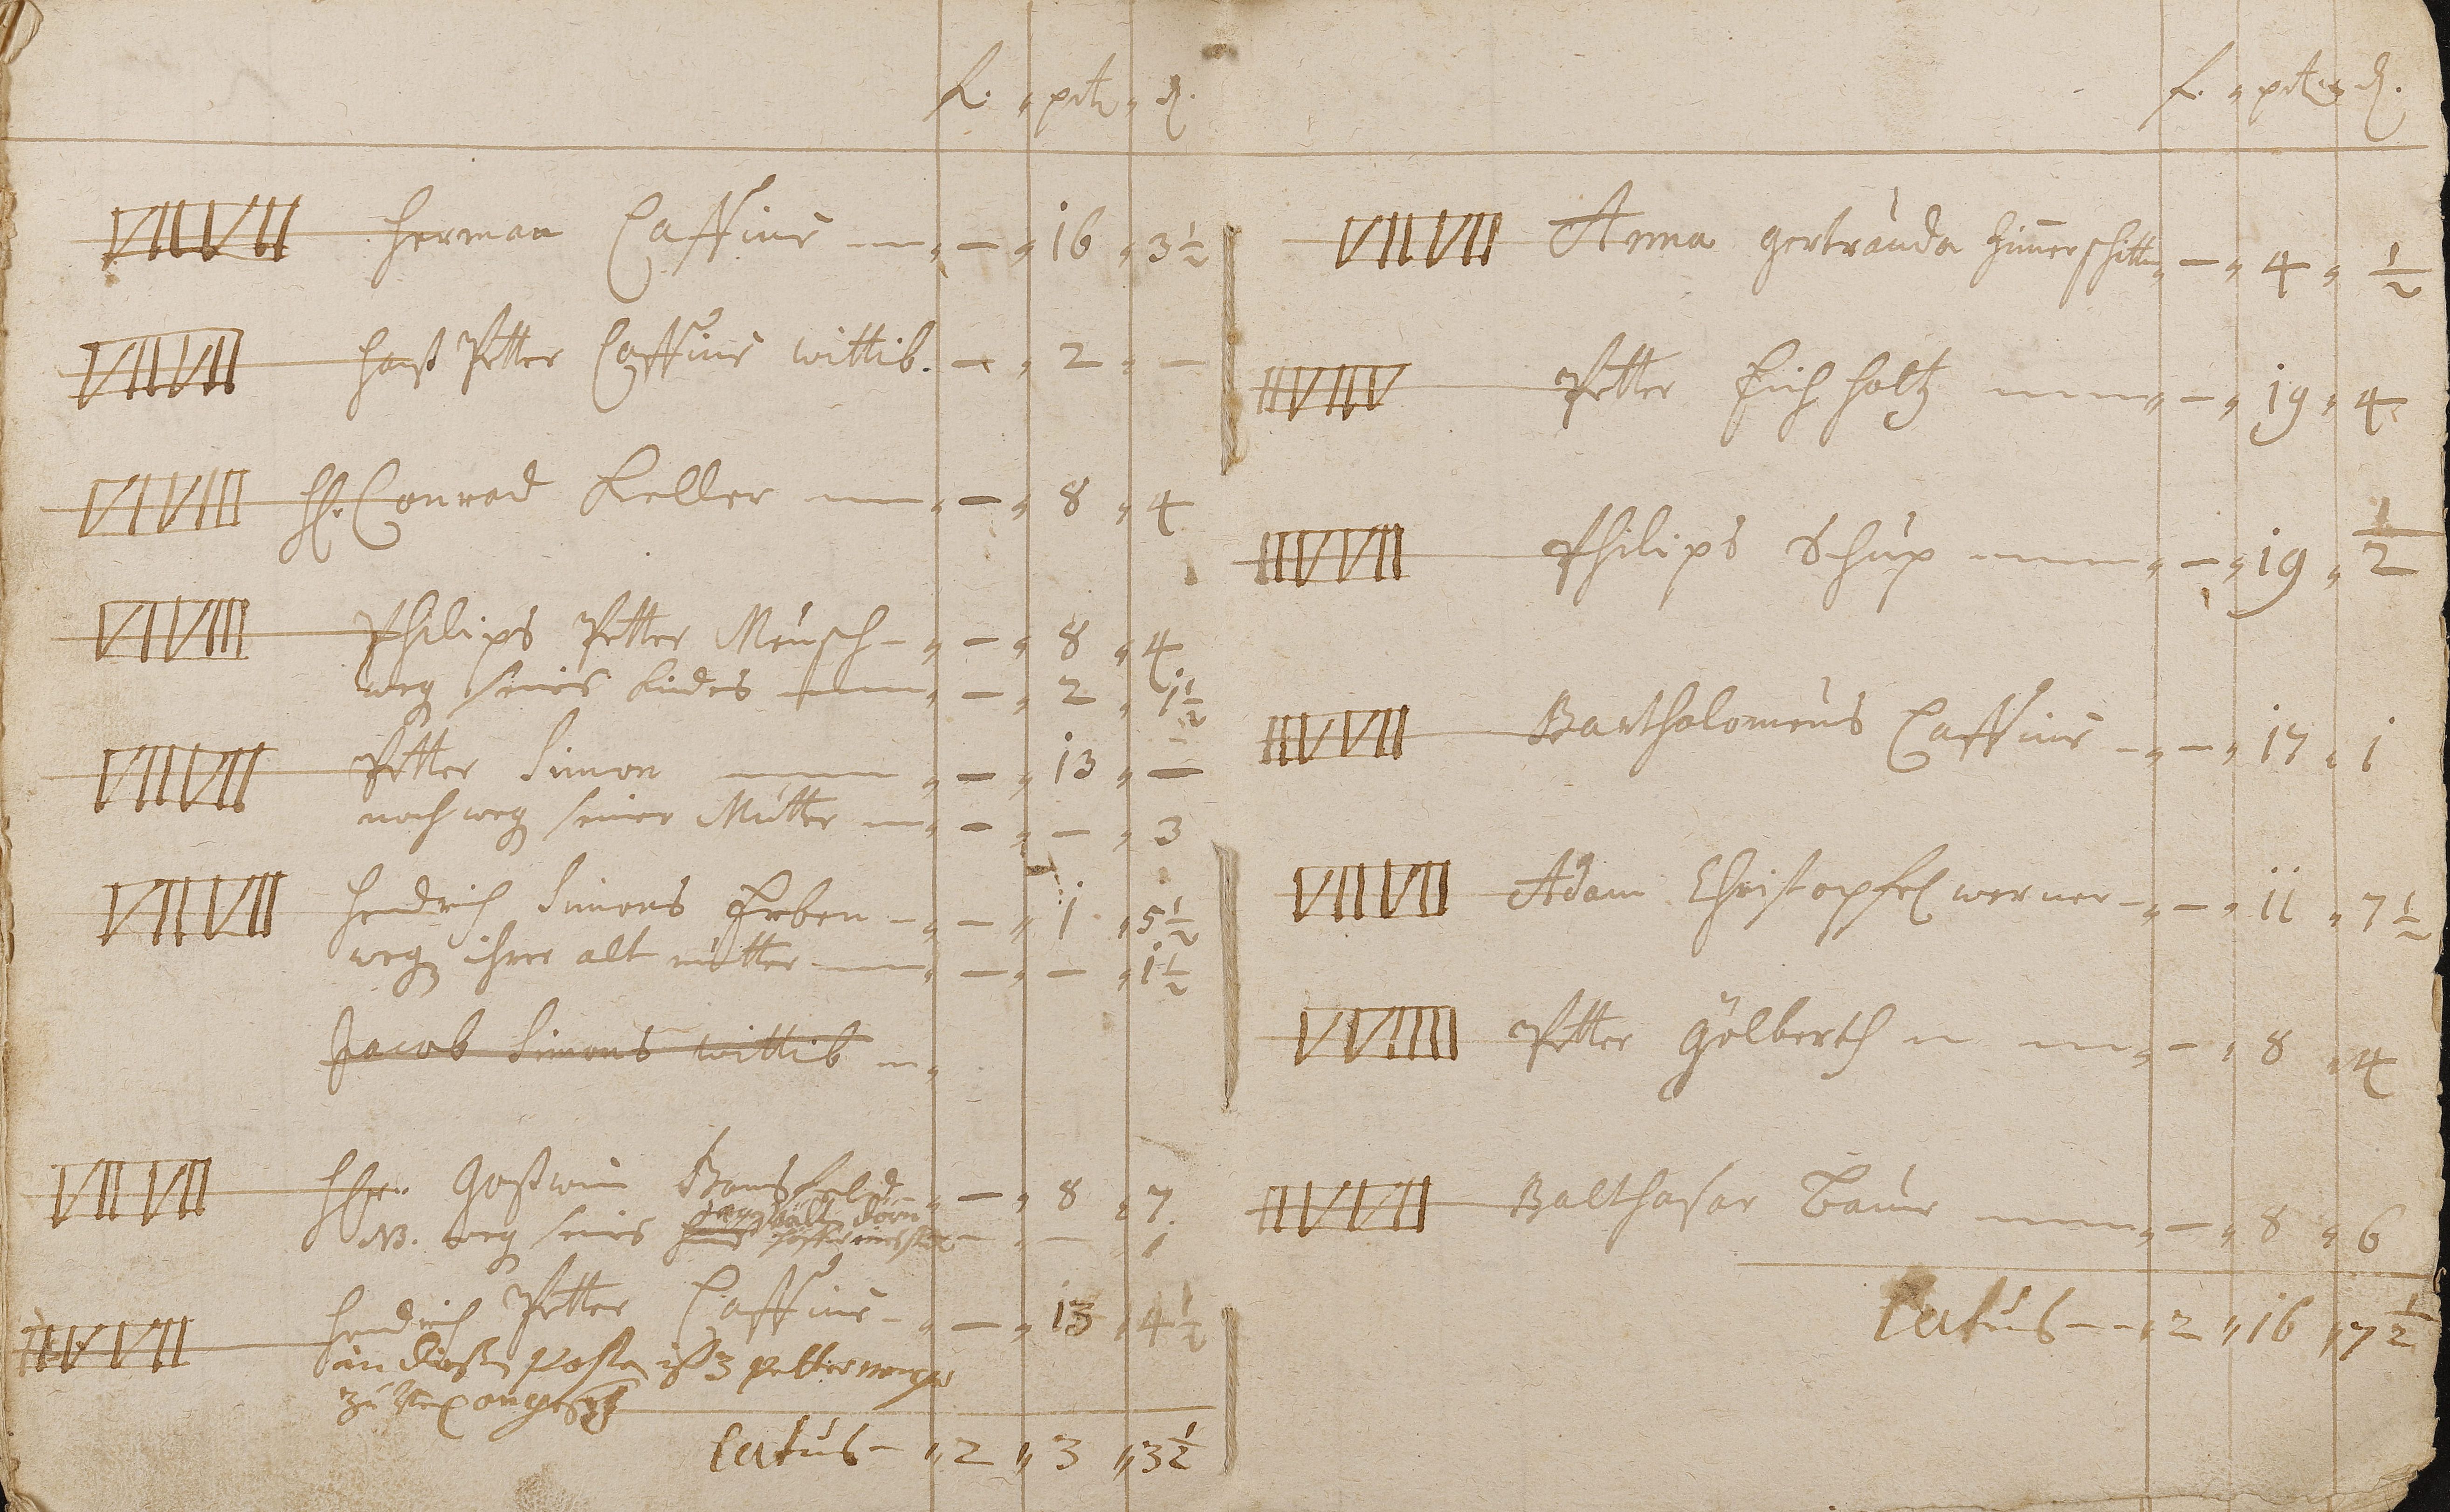 f. " ptr " d.
VII VII Herman Cassius — " — " 16 " 3½
VII VII Hanß Petter Cassius wittib. — " 2 " —
VI VIII H. Conrad Keller — " — " 8 " 4
VI VIII Philips Petter Meusch — " — " 8 " 4
weg seines Kindes — " — " 2 " 1½
VII VII Petter Simon — " — " 13 " —
noch weg seiner Mutter — " — " — " 3
VII VII Hendrich Simons Erben — " — " 1 " 5½
weg ihrer alt mutter — " — " — " 1½
Jacob Simons wittib — "
VII VII H. Goßwin — " — " 8 " 7
NB. weg seines — — 1
II V VII Hendrich Petter Cassius — " — " 13 " 4½
in dießen Posten ist 3 petter
zu
Latus — " 2 " 3 " 3½
f. " ptr " d.
VII VII Anna Gertrauda — " 4 " ½
II VII V Petter Eichholtz — " — " 19 " 4
III V VII Philips Schup — " — " 19 " ½
II V VII Bartholomeus Cassius — " — " 17 " 1
VII VII Adam Christopfel werner — " — " 11 " 7½
V VIIII Petter Gölberth — " — " 8 " 4
II V VII Balthasar Baur — " — " 8 " 6
Latus — " 2 " 16 " 7½